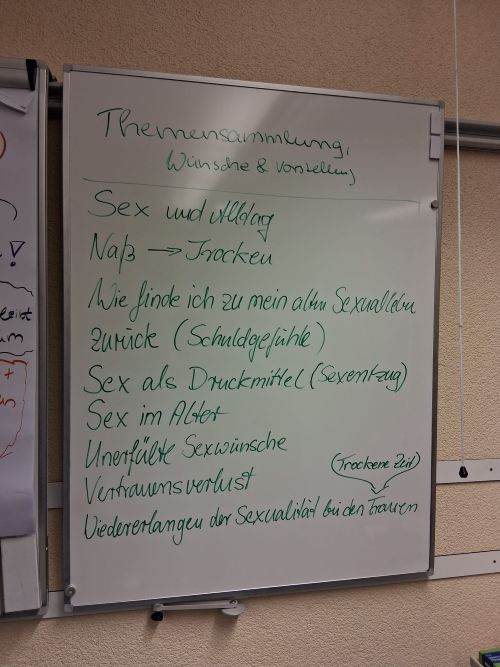 Themensammlung,
Wünsche & Vorstellung
Sex und Alltag
Naß → Trocken
Wie finde ich zu mein alten Sexualleben
zurück (Schuldgefühle)
Sex als Druckmittel (Sexentzug)
Sex im Alter
Unerfüllte Sexwünsche
(Trockene Zeit)
Vertrauensverlust
Wiedererlangen der Sexualität bei den Frauen